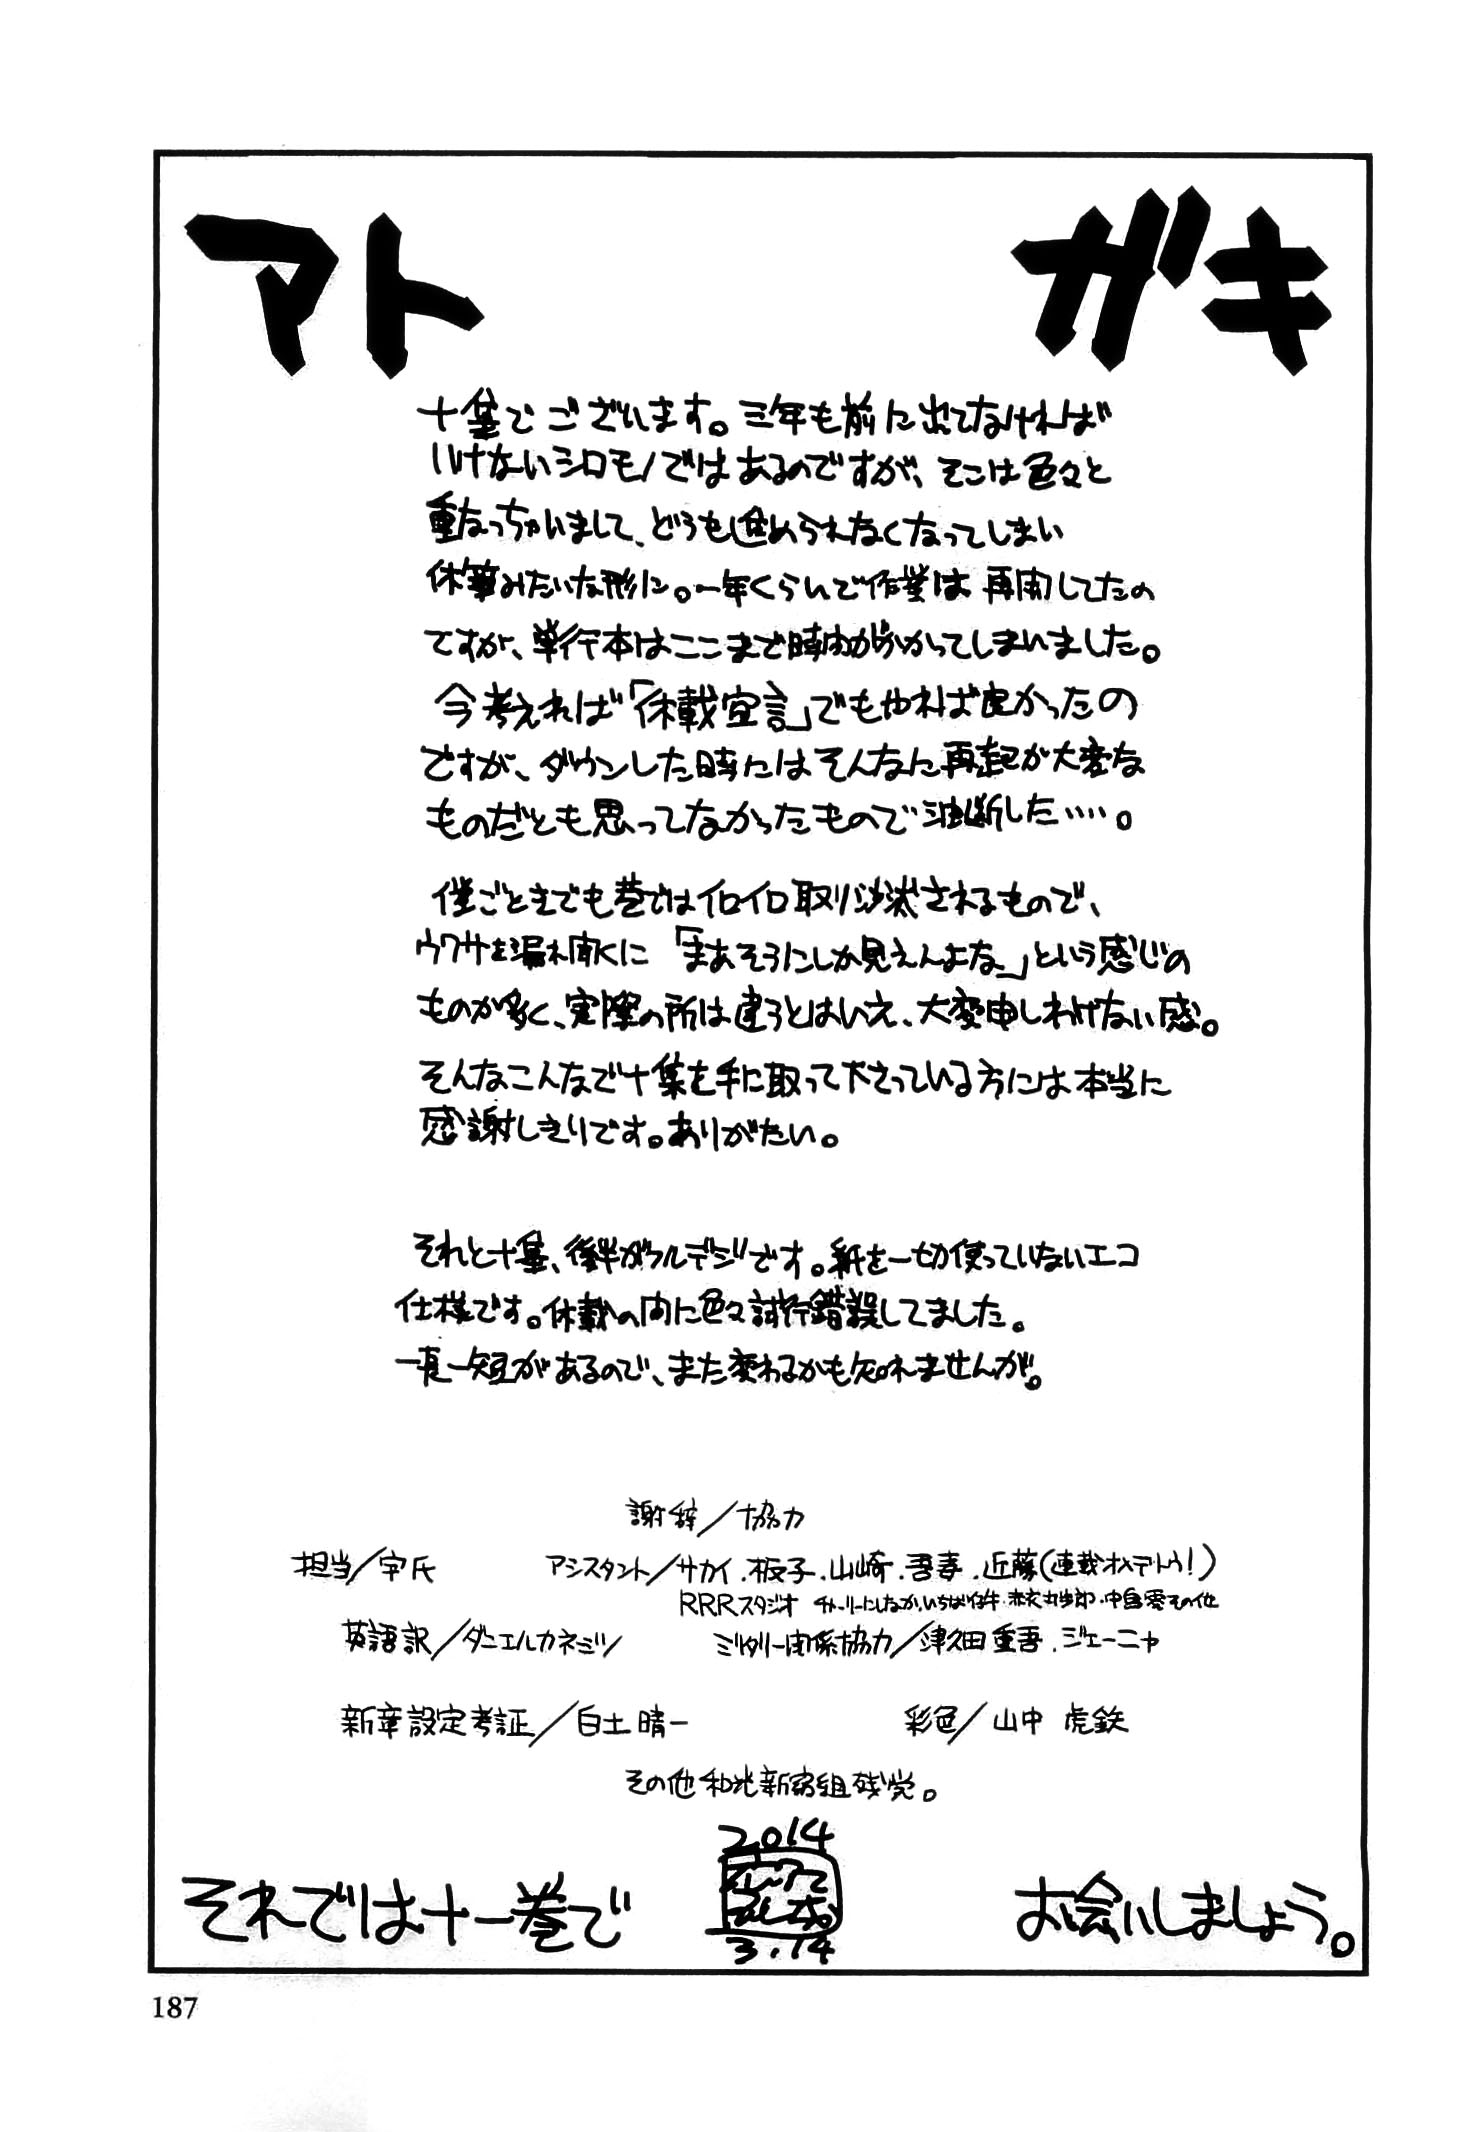 アトガキ
十集でございます。三年も前に出てなければ
いけないシロモノではあるのですが、そこは色々と
重なっちゃいまして、どうも進められなくなってしまい
休筆みたいな形に。一年くらいで作業は再開してたの
ですが、単行本はここまで時間がかかってしまいました。
今考えれば「休載宣言」でもやれば良かったの
ですが、ダウンした時にはそんなに再起が大変な
ものだとも思ってなかったもので油断した……。
僕ごときでも巷ではイロイロ取り沙汰されるもので、
ウワサを漏れ聞くに「まあそうにしか見えんよな」という感じの
ものが多く、実際の所は違うとはいえ、大変申しわけない感。
そんなこんなで十集を手に取って下さっている方には本当に
感謝しきりです。ありがたい。
それと十集、後半がフルデジです。紙を一切使っていないエコ
仕様です。休載の間に色々試行錯誤してました。
一長一短があるので、また変わるかも知れませんが。
謝辞／協力
担当／宇氏
アシスタント／サカイ.板子.山崎.吾妻.近藤(連載オメデトウ!)
RRRスタジオ
英語訳／ダニエルカネミツ
ミリタリー関係協力／津久田重吾.ジェーニャ
新章設定考証／白土晴一
彩色／山中 虎鉄
その他和光新宿組残党。
2014
3.14
それでは十一巻で
お会いしましょう。
187